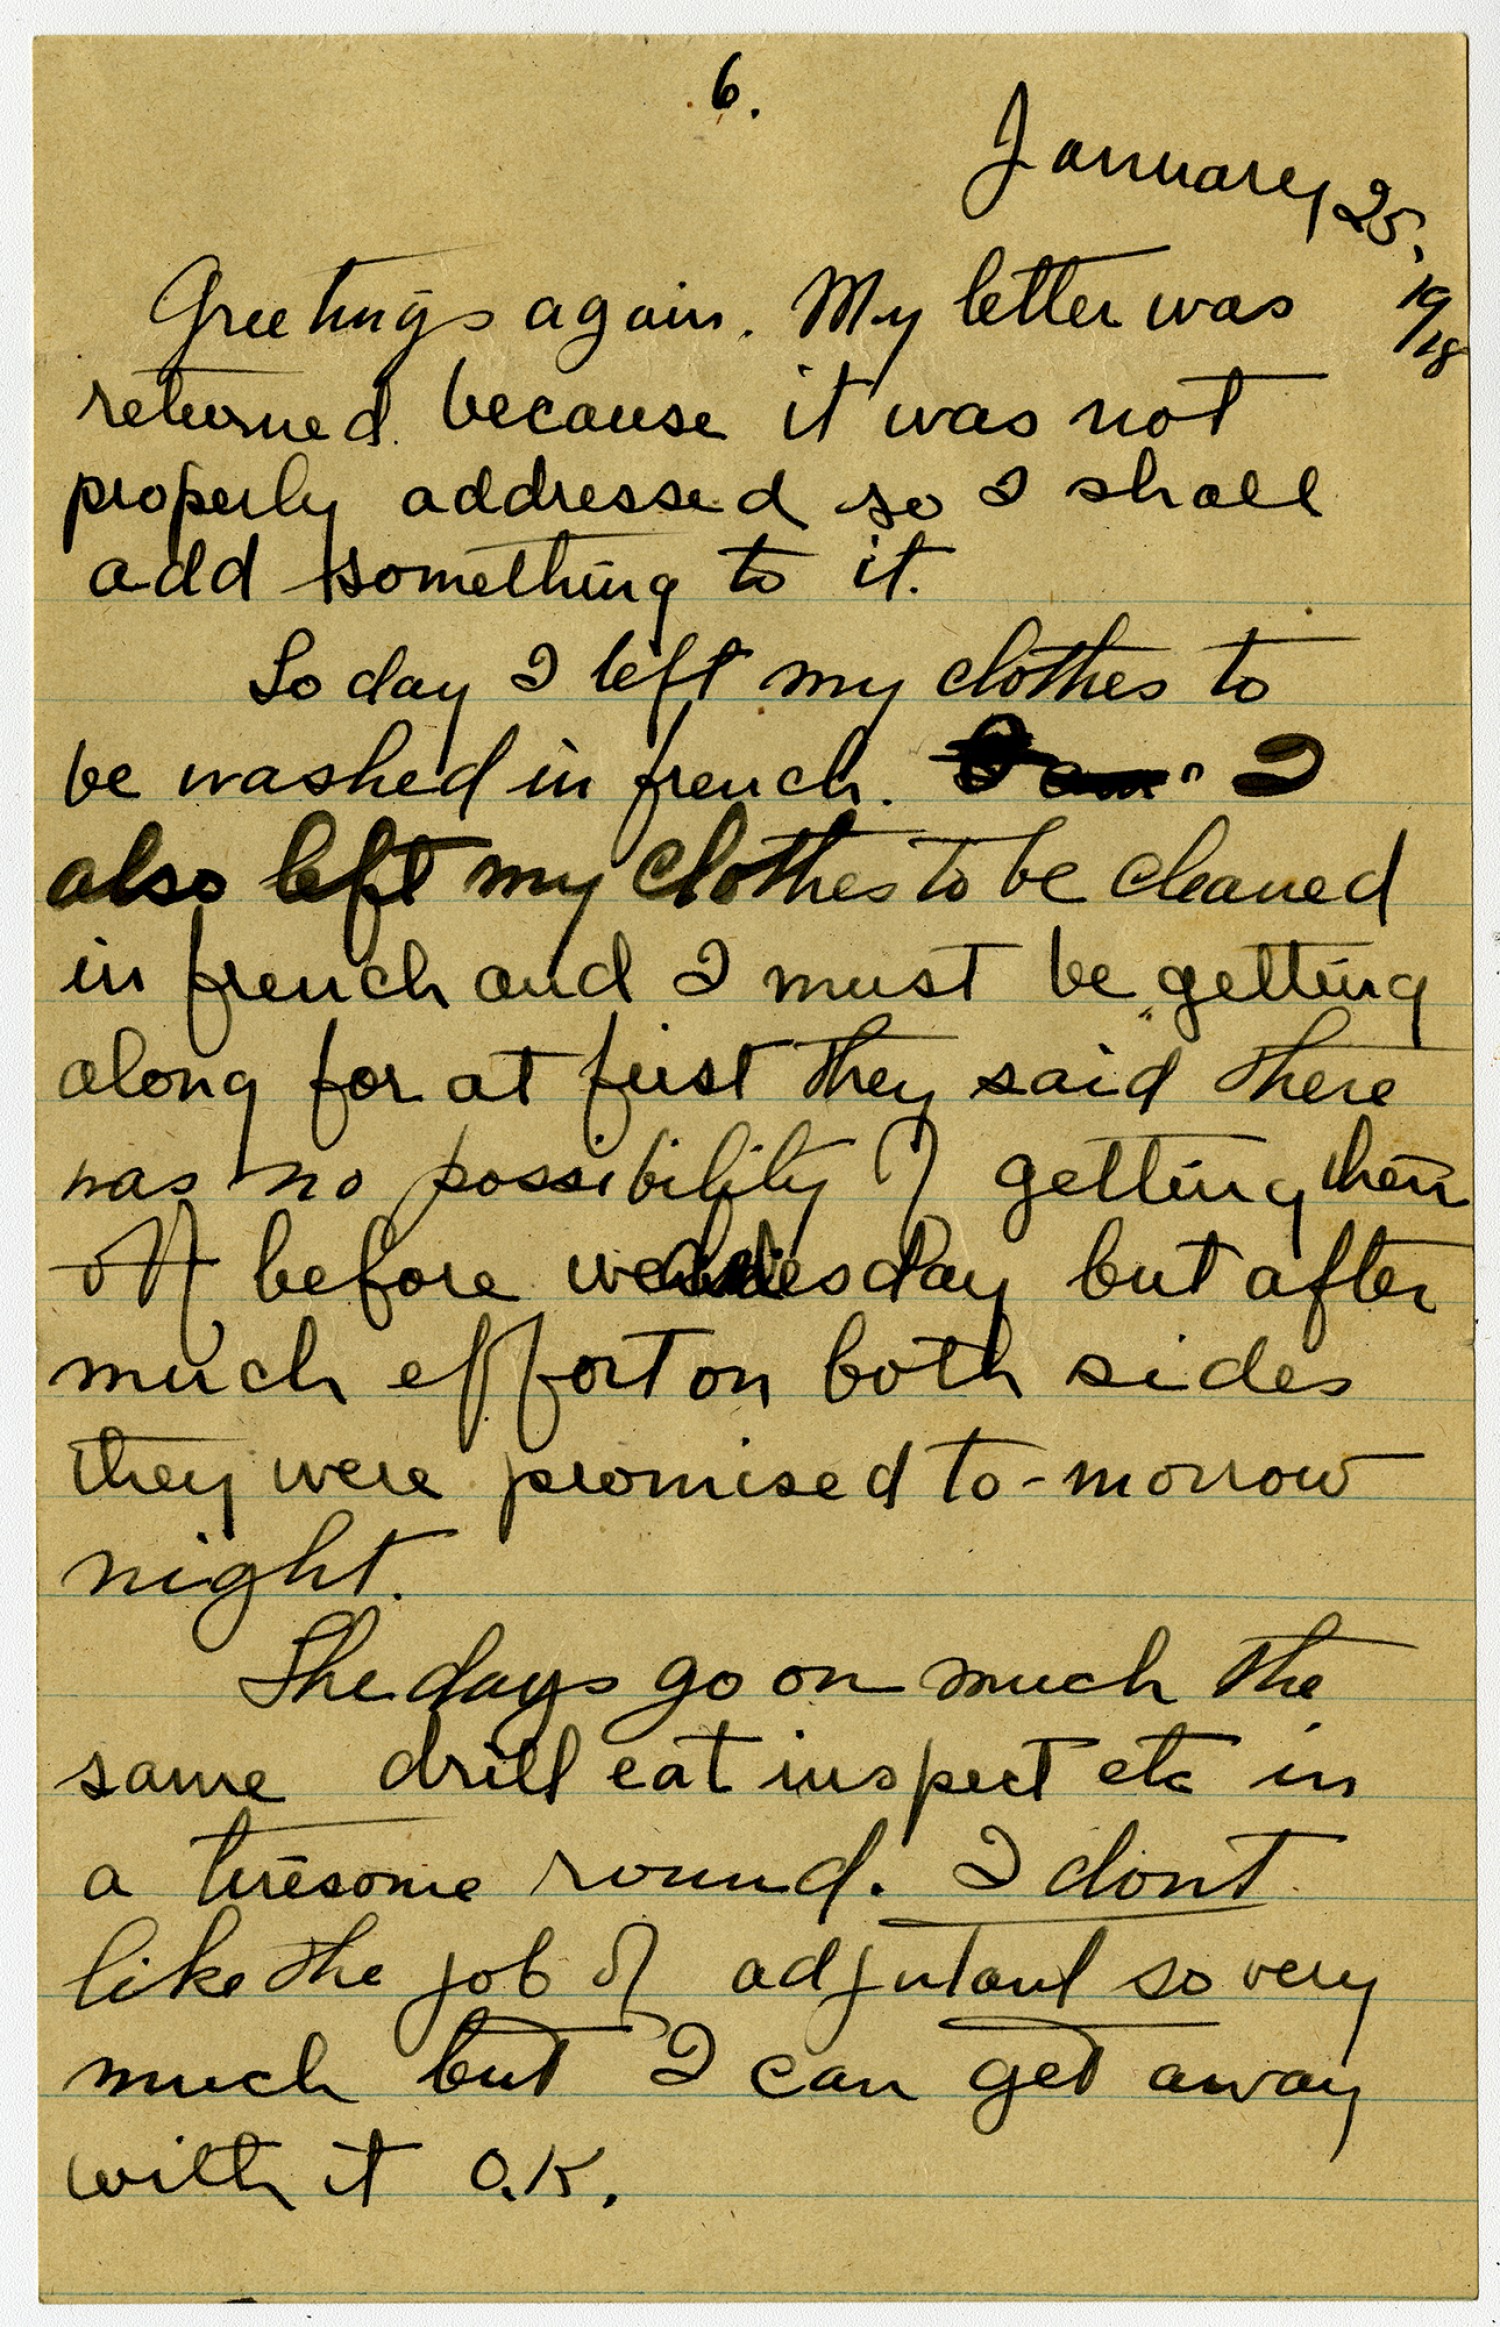 6.
January 25,
19/18
Greetings again. My letter was
returned because it was not
properly addressed so I shall
add something to it.
To day I left my clothes to
be washed in french. I
also left my clothes to be cleaned
in french and I must be getting
along for at first they said there
was no possibility of getting them
off before wednesday but after
much effort on both sides
they were promised to-morrow
night.
The days go on much the
same drill eat inspect etc in
a tiresome round. I dont
like the job of adjutant so very
much but I can get away
with it O.K.